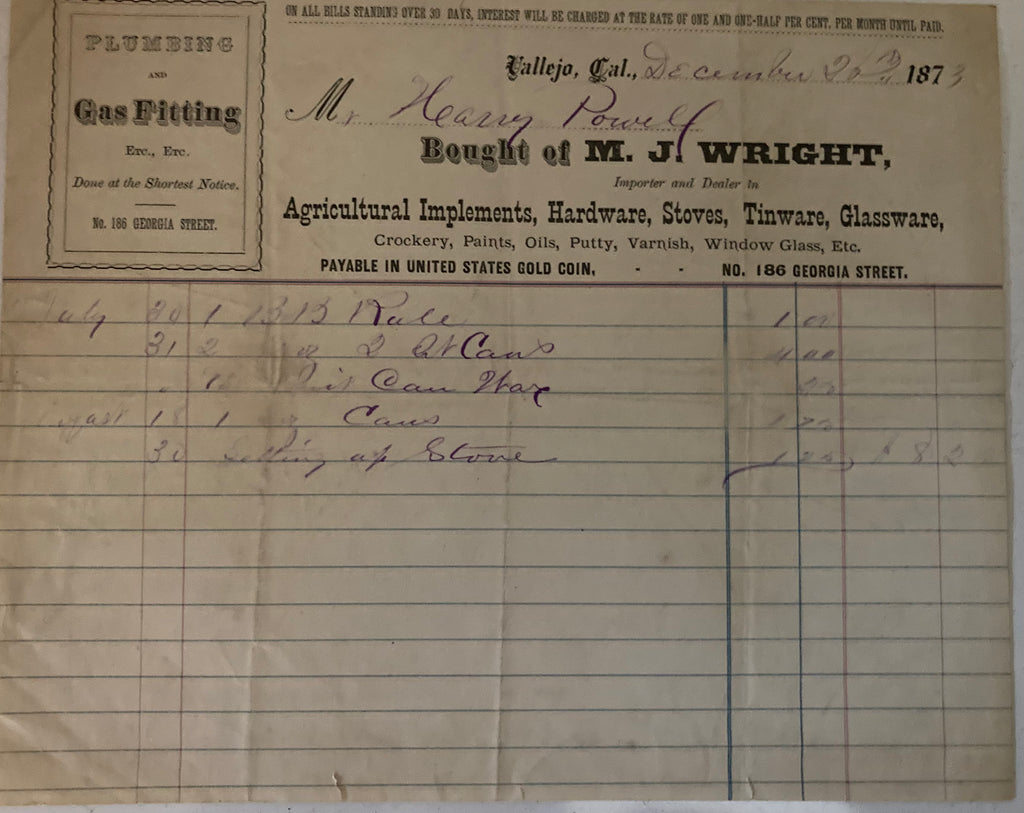 ON ALL BILLS STANDING OVER 30 DAYS, INTEREST WILL BE CHARGED AT THE RATE OF ONE AND ONE-HALF PER CENT. PER MONTH UNTIL PAID.
PLUMBING
AND
Gas Fitting
Etc., Etc.
Done at the Shortest Notice.
No. 186 GEORGIA STREET.
Vallejo, Cal., December 1873
Mr Harry Powell
Bought of M. J. WRIGHT,
Importer and Dealer in
Agricultural Implements, Hardware, Stoves, Tinware, Glassware,
Crockery, Paints, Oils, Putty, Varnish, Window Glass, Etc.
PAYABLE IN UNITED STATES GOLD COIN, - - NO. 186 GEORGIA STREET.
July 30 1 Rule 1
31 2 2 Qt Cans 4 00
Can Wax
18 1 Cans 1
30 Setting up Stove 1 $ 8 2